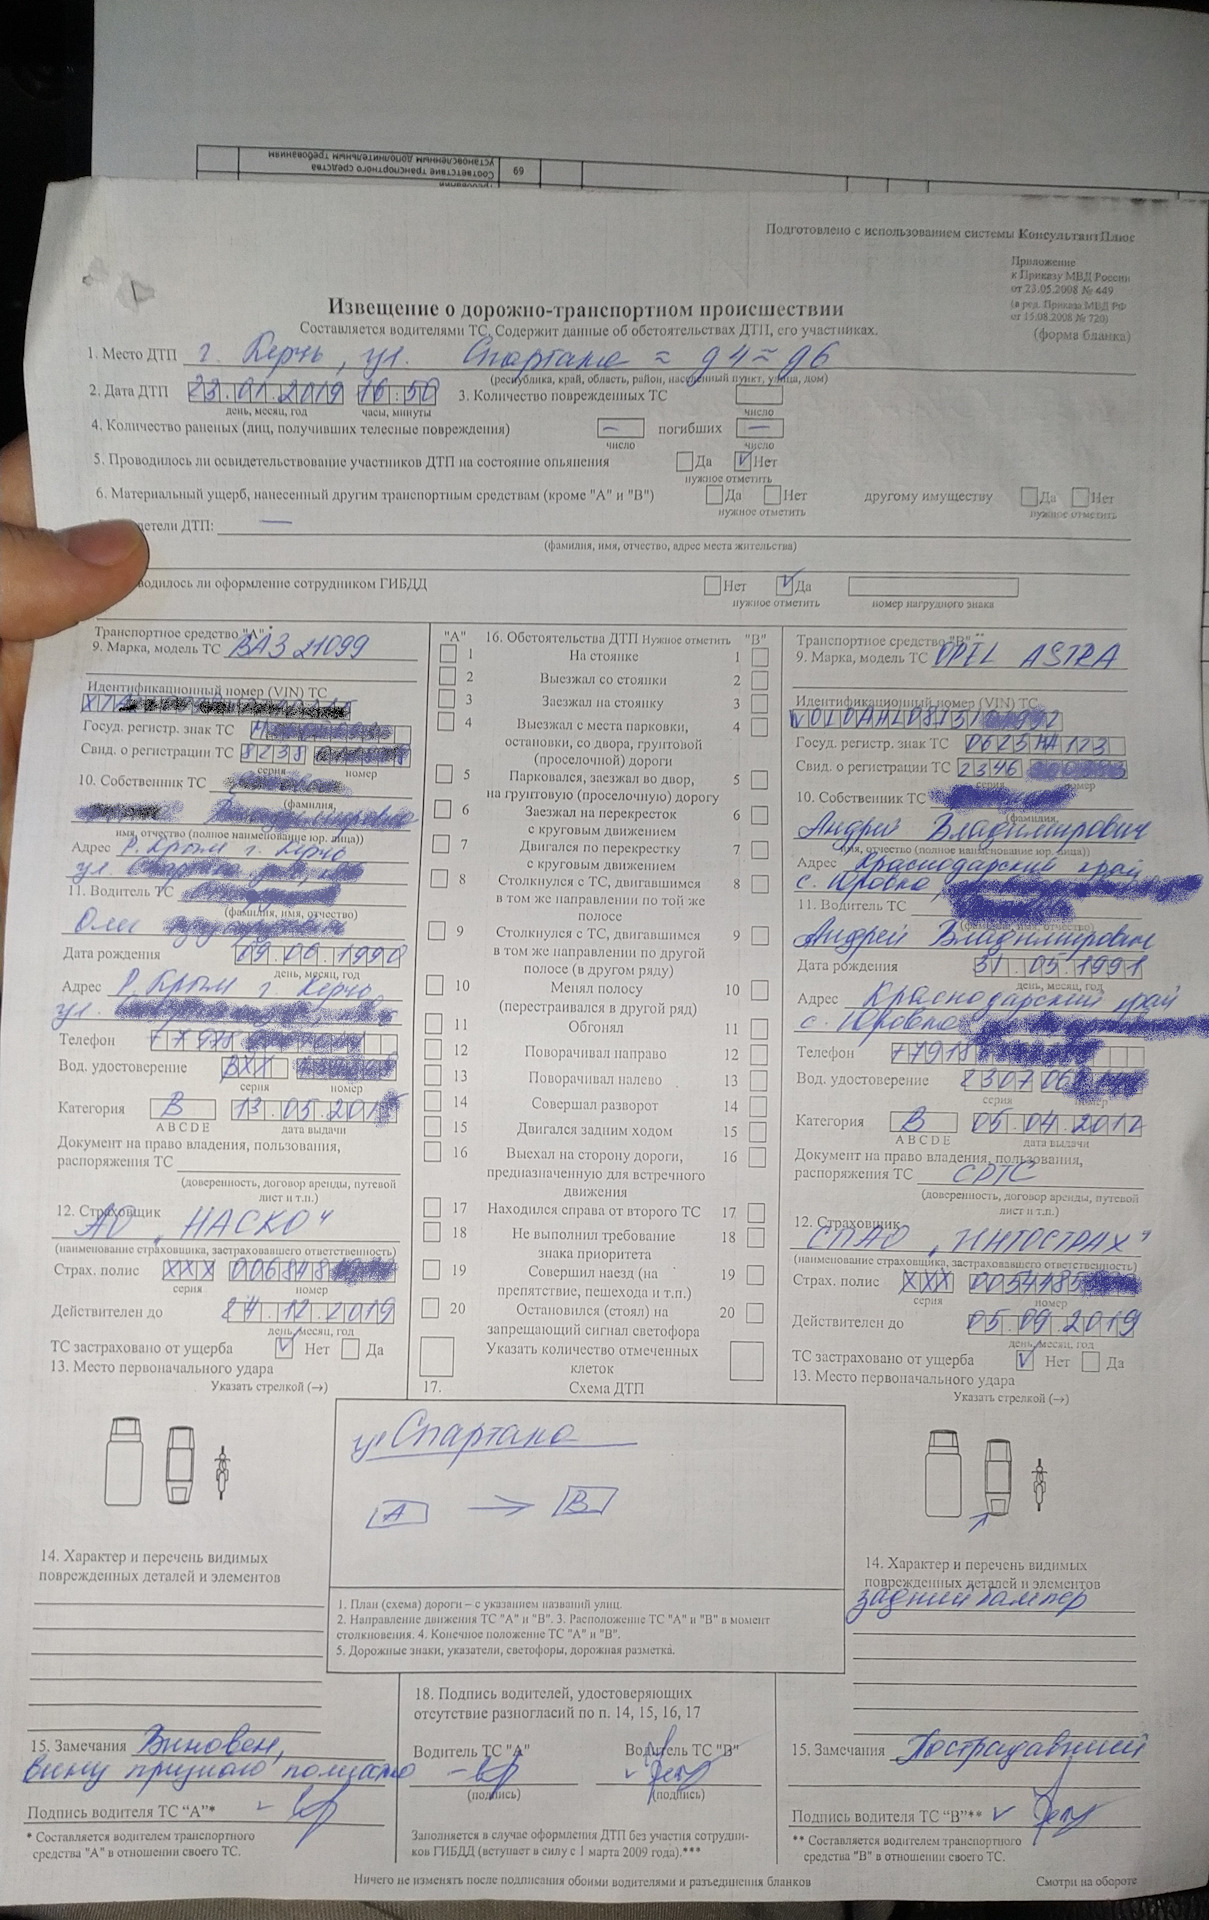 установленным дополнительным требованиям
Соответствие транспортного средства
69
Подготовлено с использованием системы КонсультантПлюс
Приложение
к Приказу МВД России
от 23.05.2008 № 449
(в ред. Приказа МВД РФ
от 15.08.2008 № 720)
(форма бланка)
Извещение о дорожно-транспортном происшествии
Составляется водителями ТС. Содержит данные об обстоятельствах ДТП, его участниках.
1. Место ДТП г. Керчь, ул. Спартака
(республика, край, область, район, населенный пункт, улица, дом)
2. Дата ДТП 23.01.2019 16:50 3. Количество поврежденных ТС
день, месяц, год часы, минуты число
4. Количество раненых (лиц, получивших телесные повреждения) — погибших —
число число
5. Проводилось ли освидетельствование участников ДТП на состояние опьянения Да V Нет
нужное отметить
6. Материальный ущерб, нанесенный другим транспортным средствам (кроме "А" и "В") Да Нет другому имуществу Да Нет
нужное отметить нужное отметить
ДТП: —
(фамилия, имя, отчество, адрес места жительства)
ли оформление сотрудником ГИБДД Нет V Да
нужное отметить номер нагрудного знака
Транспортное средство "А" *
9. Марка, модель ТС ВАЗ 21099
Идентификационный номер (VIN) ТС
Госуд. регистр. знак ТС
Свид. о регистрации ТС 8238
серия номер
10. Собственник ТС
(фамилия,
имя, отчество (полное наименование юр. лица))
Адрес Р. Крым г. Керчь
ул.
11. Водитель ТС
(фамилия, имя, отчество)
Олег
Дата рождения 09.06.1990
день, месяц, год
Адрес Р. Крым г. Керчь
ул.
Телефон +7978
Вод. удостоверение
серия номер
Категория B 13.05.201
A B C D E дата выдачи
Документ на право владения, пользования,
распоряжения ТС
(доверенность, договор аренды, путевой
лист и т.п.)
12. Страховщик АО „НАСКО"
(наименование страховщика, застраховавшего ответственность)
Страх. полис XXX 006848
серия номер
Действителен до 24.12.2019
день, месяц, год
ТС застраховано от ущерба V Нет Да
13. Место первоначального удара
Указать стрелкой (→)
14. Характер и перечень видимых
поврежденных деталей и элементов
15. Замечания Виновен,
вину признаю полностью
Подпись водителя ТС "А"*
* Составляется водителем транспортного
средства "А" в отношении своего ТС.
"А" 16. Обстоятельства ДТП Нужное отметить "В"
1 На стоянке 1
2 Выезжал со стоянки 2
3 Заезжал на стоянку 3
4 Выезжал с места парковки, 4
остановки, со двора, грунтовой
(проселочной) дороги
5 Парковался, заезжал во двор, 5
на грунтовую (проселочную) дорогу
6 Заезжал на перекресток 6
с круговым движением
7 Двигался по перекрестку 7
с круговым движением
8 Столкнулся с ТС, двигавшимся 8
в том же направлении по той же
полосе
9 Столкнулся с ТС, двигавшимся 9
в том же направлении по другой
полосе (в другом ряду)
10 Менял полосу 10
(перестраивался в другой ряд)
11 Обгонял 11
12 Поворачивал направо 12
13 Поворачивал налево 13
14 Совершал разворот 14
15 Двигался задним ходом 15
16 Выехал на сторону дороги, 16
предназначенную для встречного
движения
17 Находился справа от второго ТС 17
18 Не выполнил требование 18
знака приоритета
19 Совершил наезд (на 19
препятствие, пешехода и т.п.)
20 Остановился (стоял) на 20
запрещающий сигнал светофора
Указать количество отмеченных
клеток
17. Схема ДТП
ул Спартака
А → В
1. План (схема) дороги – с указанием названий улиц.
2. Направление движения ТС "А" и "В". 3. Расположение ТС "А" и "В" в момент
столкновения. 4. Конечное положение ТС "А" и "В".
5. Дорожные знаки, указатели, светофоры, дорожная разметка.
18. Подпись водителей, удостоверяющих
отсутствие разногласий по п. 14, 15, 16, 17
Водитель ТС "А" Водитель ТС "В"
(подпись) (подпись)
Заполняется в случае оформления ДТП без участия сотрудни-
ков ГИБДД (вступает в силу с 1 марта 2009 года).***
Транспортное средство "В" **
9. Марка, модель ТС OPEL ASTRA
Идентификационный номер (VIN) ТС
Госуд. регистр. знак ТС
Свид. о регистрации ТС 2346
серия номер
10. Собственник ТС
(фамилия,
Андрей Владимирович
имя, отчество (полное наименование юр. лица))
Адрес Краснодарский край
с. Юровка
11. Водитель ТС
(фамилия, имя, отчество)
Андрей Владимирович
Дата рождения 31.05.1991
день, месяц, год
Адрес Краснодарский край
с. Юровка
Телефон +7918
Вод. удостоверение 2307
серия номер
Категория B 05.04.2012
A B C D E дата выдачи
Документ на право владения, пользования,
распоряжения ТС СРТС
(доверенность, договор аренды, путевой
лист и т.п.)
12. Страховщик СПАО „ИНГОСТРАХ"
(наименование страховщика, застраховавшего ответственность)
Страх. полис XXX
серия номер
Действителен до 05.09.2019
день, месяц, год
ТС застраховано от ущерба V Нет Да
13. Место первоначального удара
Указать стрелкой (→)
14. Характер и перечень видимых
поврежденных деталей и элементов
задний бампер
15. Замечания Пострадавший
Подпись водителя ТС "В"**
** Составляется водителем транспортного
средства "В" в отношении своего ТС.
Ничего не изменять после подписания обоими водителями и разъединения бланков
Смотри на обороте